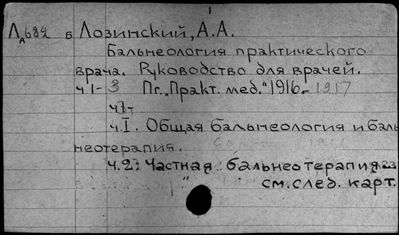 Лд682 б Лозинский, А.А.
Бальнеология практического
врача. Руководство для врачей.
ч 1-3 Пг. „Практ. мед." 1916-1917
ч.I. Общая бальнеология и баль
неотерапия.
ч.2: Частная бальнеотерапия
см. след. карт.